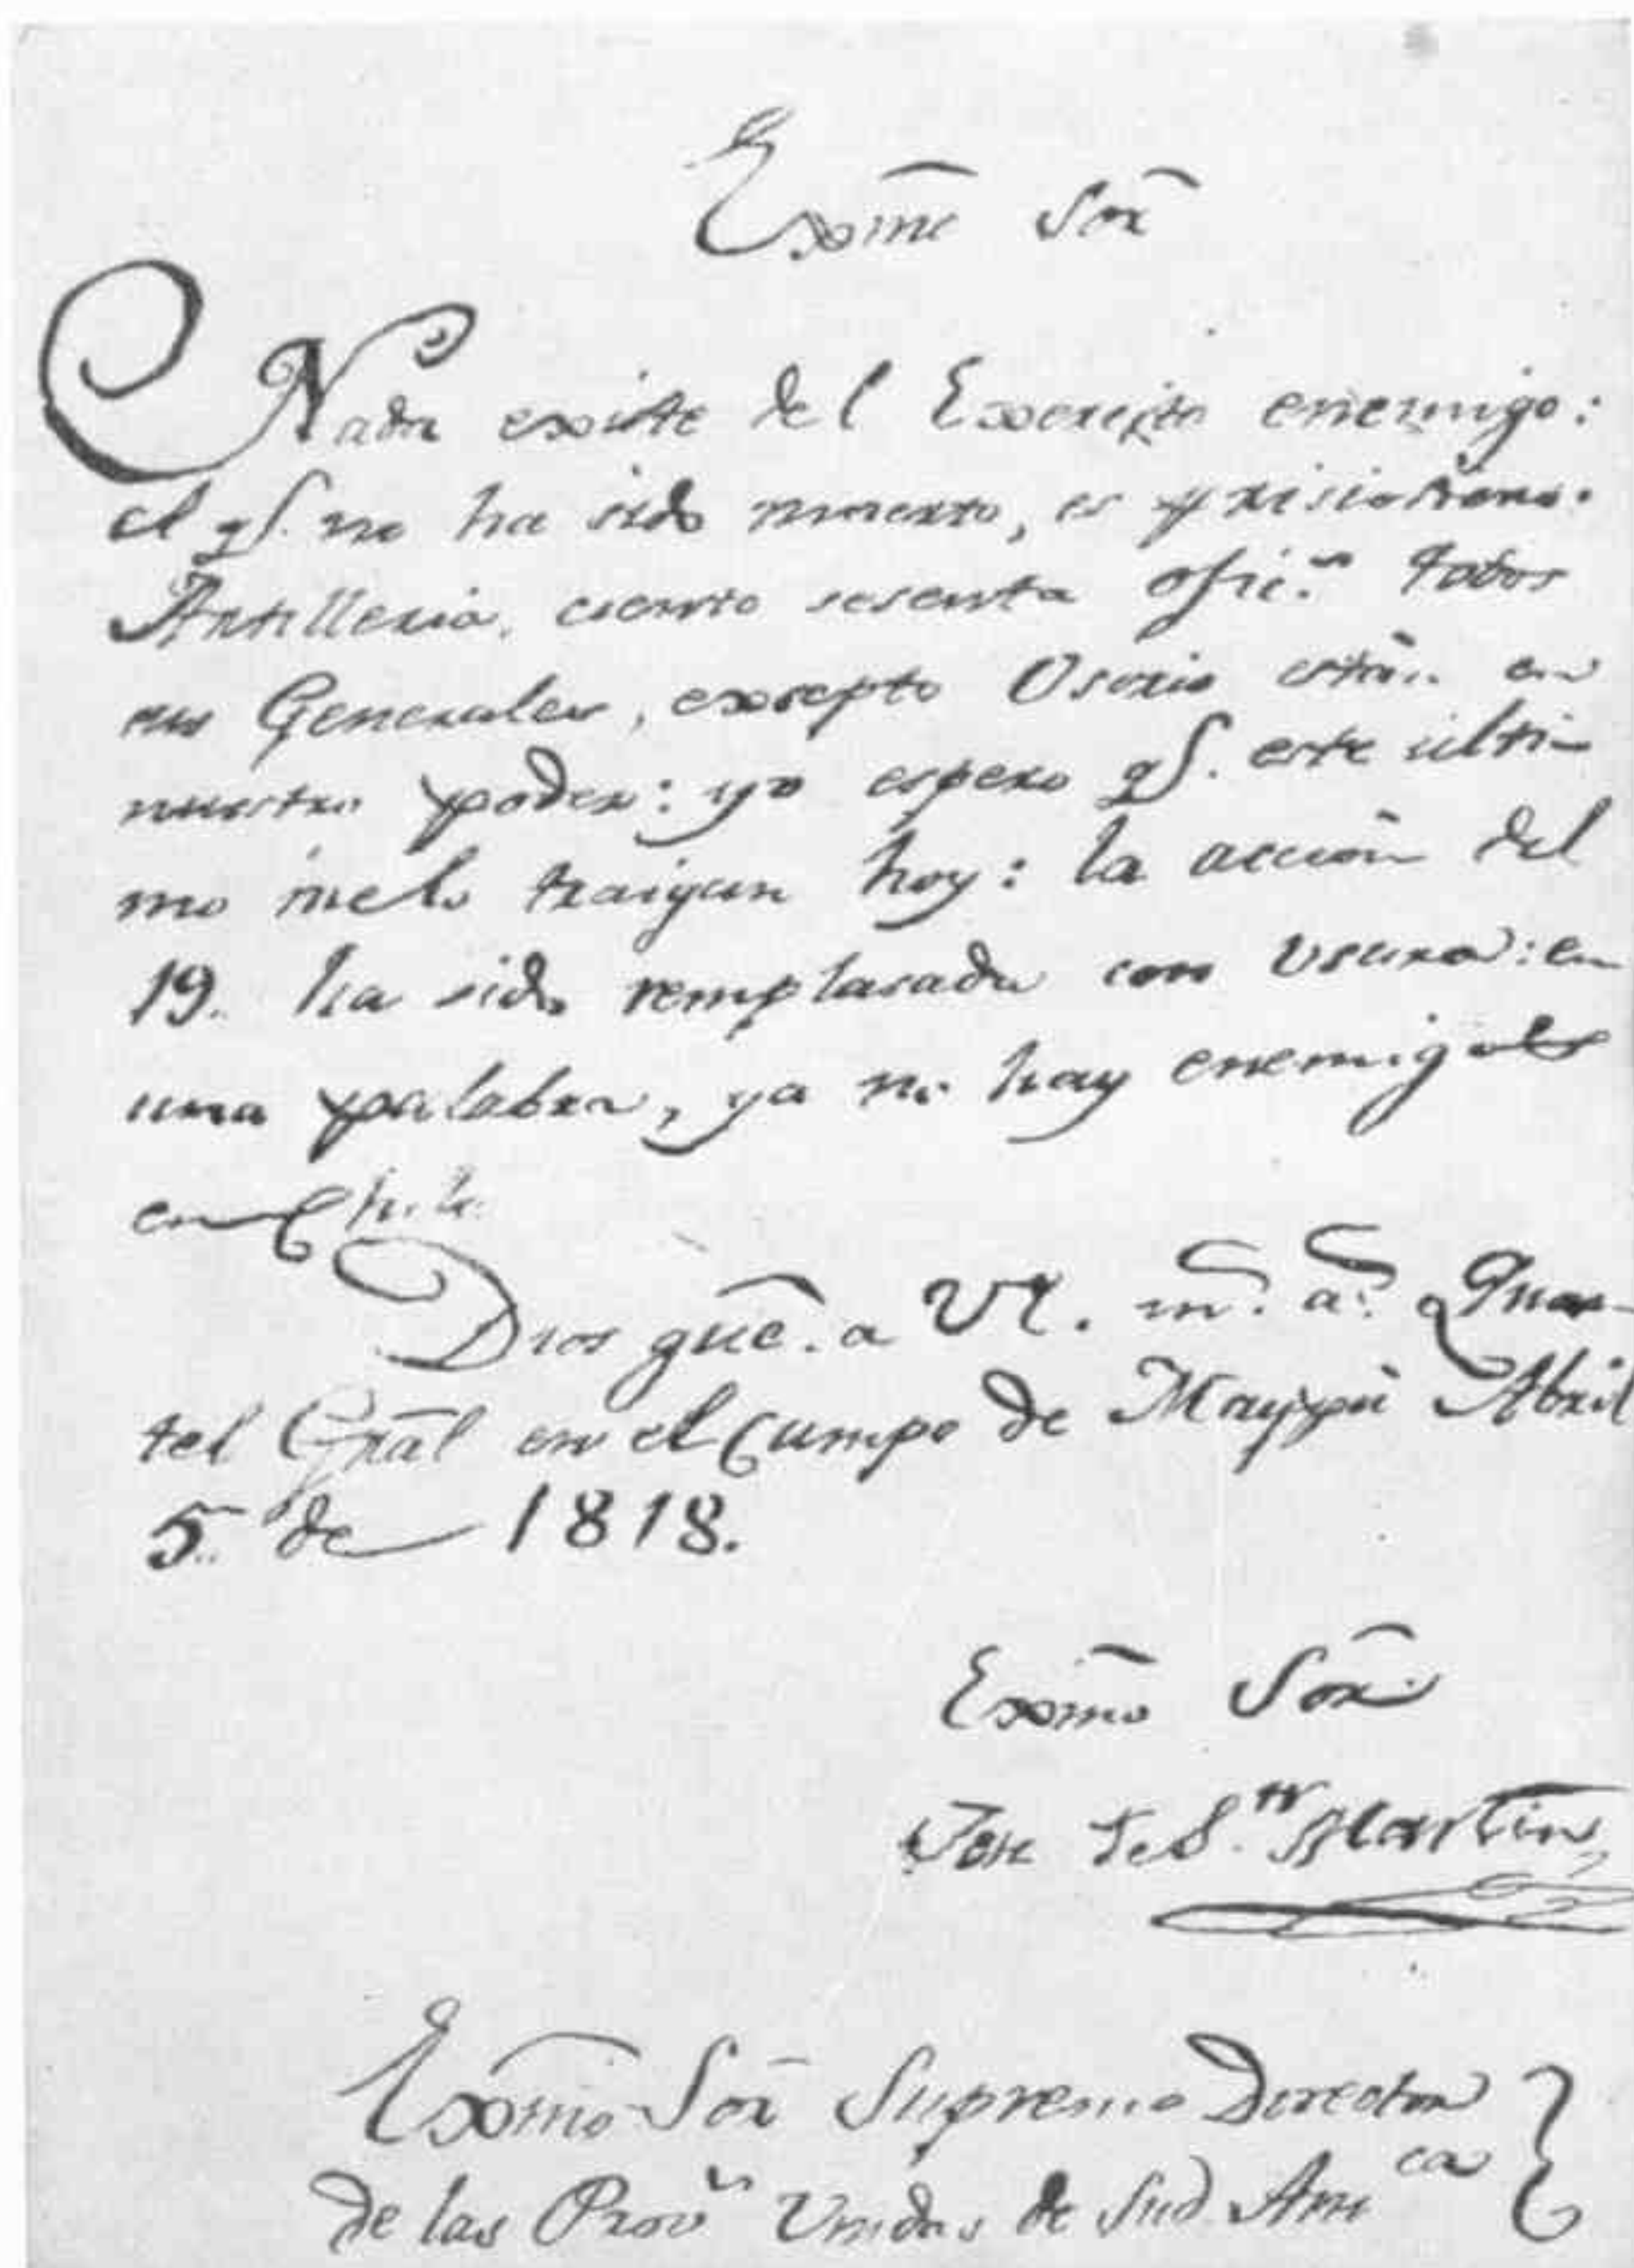 Exmõ Sõr
Nada existe del Exercito enemigo:
el qe. no ha sido muerto, es prisionero.
Artilleria, ciento sesenta ofic.s todos
sus Generales, excepto Osorio están en
nuestro poder: yo espero qe. este ulti-
mo me lo traigan hoy: la accion del
19. ha sido remplasada con usura: en
una palabra, ya no hay enemigos
en Chile.
Dios gũe. a VE. m.s a.s Quar-
tel Grãl en el Campo de Maypú Abril
5. de 1818.
Exmõ Sõr
Jose de S.n Martin
Exmõ Sõr Supremo Director
de las Prov.s Unidas de Sud Am.ca